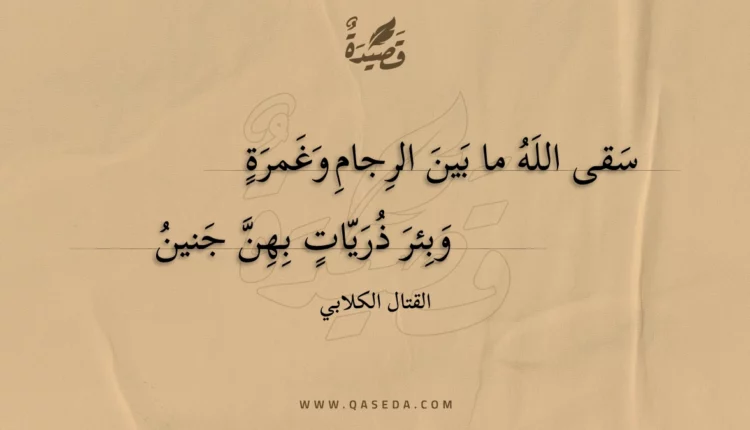 قَصِيدَةٌ
سَقى اللَهُ ما بَينَ الرِجامِ وَغَمرَةٍ
وَبِئرَ ذُرَيّاتٍ بِهِنَّ جَنينُ
القتال الكلابي
WWW.QASEDA.COM